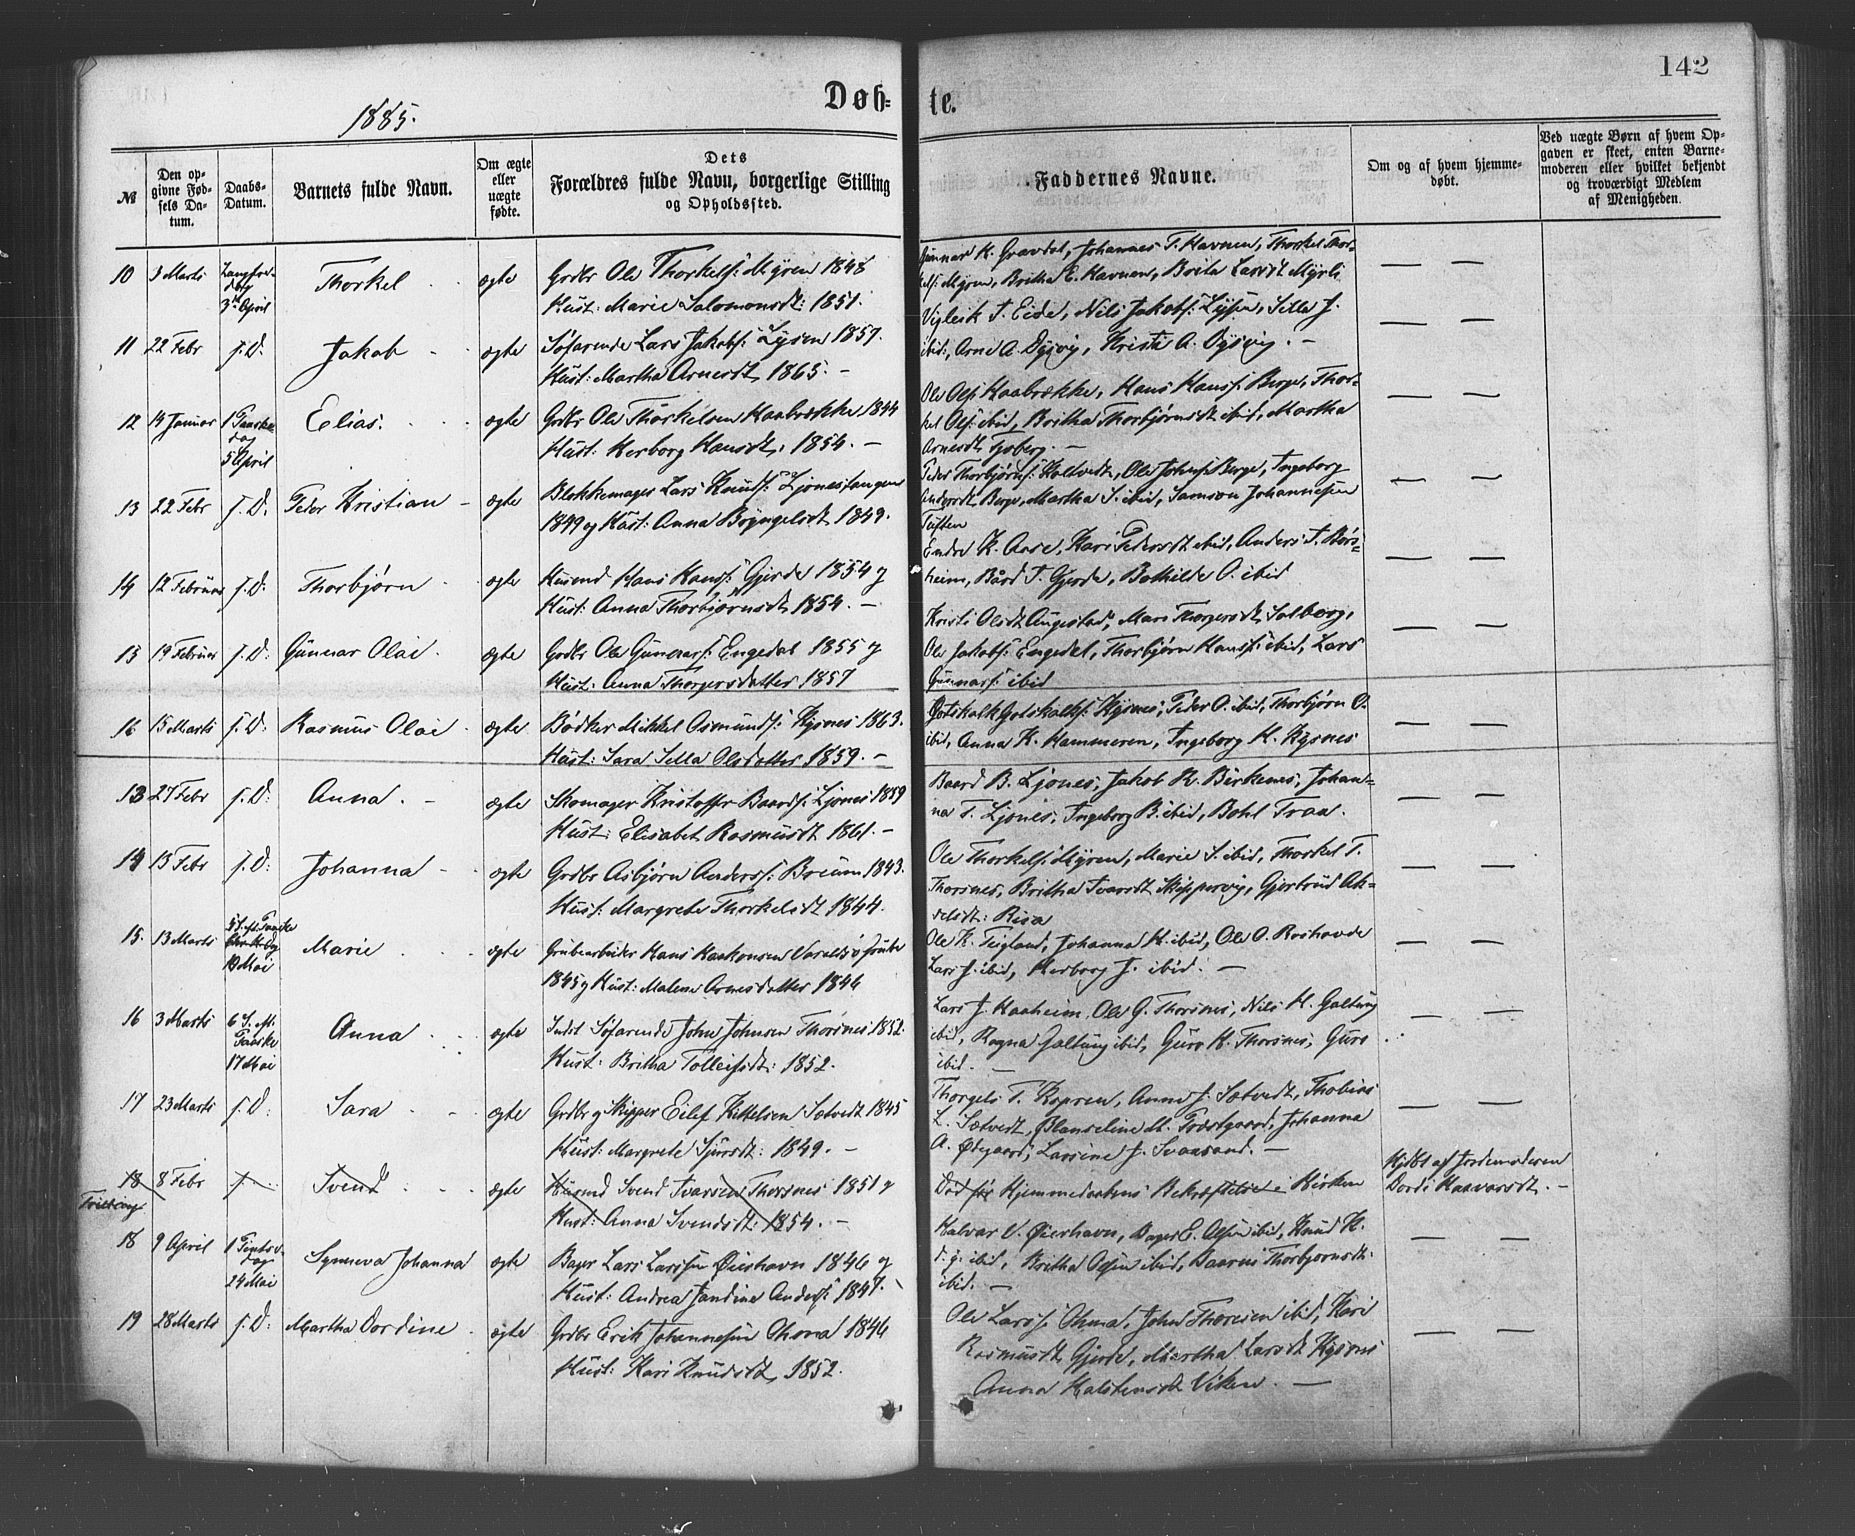 142
Døb=
te.
1885.
№
Den op-
givne Fød-
sels Da-
tum.
Daabs-
Datum.
Barnets fulde Navn.
Om ægte
eller
uægte
fødte.
Dets
Forældres fulde Navn, borgerlige Stilling
og Opholdssted.
Faddernes Navne.
Om og af hvem hjemme-
døbt.
Ved uægte Børn af hvem Op-
gaven er skeet, enten Barne-
moderen eller hvilket bekjendt
og troværdigt Medlem
af Menigheden.
10 9 Marts Langfre-
dag
3die April
Thorkel ægte
Grdbr Ole Thorkelss: Myren 1848
Hust: Marie Salomonsdt: 1851.
Gunnar K. Gravdal, Johannes T. Havnen, Thorkel Thor-
kels: Myren, Britha E. Havnen, Brita Larsdt Myrli
11 22 Febr s. D. Jakob ægte
Søfarende Lars Jakobs: Lysen 1857.
Hust: Martha Arnesdt, 1865. —
Vigleik T. Eide, Nils Jakobs: Lysen, Silla J.
ibid:, Arne A. Dysvig, Krista A. Dysvig. —
12 14 Januar 1 Paaske-
dag
5 April
Elias. ægte
Grdbr Ole Thorkelsen Haabrække 1844
Hust: Herborg Hansdt: 1854. —
Ole Ols: Haabrække, Hans Hanss: Berge, Thor-
kel Ols: ibid, Britha Thorbjørnsdt ibid, Martha
Arnesdt —
13 22 Febr s. D. Peder Kristian — ægte
Blokkemager Lars Knuds: Ljonestangen
1849 og Hust: Anna Brynjelsdt 1849.
Peder Thorbjørns: Holtvedt, Ole Johns: Berge, Ingeborg
Andersdt Berge, Martha S. ibid, Samson Johannesen
Tuften
14 12 Februar s. D. Thorbjørn ægte
Husmd Hans Hanss: Gjerde 1854 og
Hust: Anna Thorbjørnsdt 1854. —
Endre K. Aase, Kari Pedersdt ibid, Anders T. Børs=
heim, Bård T. Gjerde, Bothilde O. ibid
15 19 Februar s. D: Gunnar Olai ægte
Grdbr Ole Gunnars: Engedal 1855 og
Hust: Anna Thorgersdatter 1857
Kristi Olsdt Augestad, Mari Thorgersdt, Solberg,
Ole Jakobs: Engedal, Thorbjørn Hanss: ibid, Lars
Gunnars: ibid
16 15 Marts s. D: Rasmus Olai ægte
Bødker Mikkel Osmunds: Hysnes 1863.
Hust: Sara Silla Olsdatter 1859. —
Gotskalk Gotskalks: Hysnes, Peder O. ibid, Thorbjørn O.
ibid, Anna K. Hammeren, Ingeborg H. Hysnes
13 27 Febr s. D: Anna. — ægte
Skomager Kristoffer Baards: Ljones 1859
Hust: Elisabet Rasmusdt 1861. —
Baard B. Ljones, Jakob R. Birkenes, Johan-
na T. Ljones, Ingeborg B. ibid, Bohl Traa.
14 13 Febr s. D: Johanna ægte
Grdbr Asbjørn Anderss: Breum 1843.
Hust: Margrete Thorkelsdt 1844.
Ole Thorkels: Myren, Marie S. ibid, Thorkel T.
Thorsnes, Britha Ivarsdt Skippervig, Gjertrud Ak-
selsdt: Risa
15. 13 Marts
10 Mai
Marie ægte
Grubearbeider Hans Haakonsen Varaldsø Grube
1845 og Hust: Malene Arnesdatter 1846
Ole K. Teigland, Johanna H. ibid, Ole O. Roshovde
Lars J. ibid, Herborg J. ibid. —
16 3 Marts 6 S. e.
Paaske
17 Mai
Anna ægte
Indst Søfarende John Johnsen Thorsnes 1852.
Hust: Britha Tolleifsdt: 1852.
Lars J. Haaheim, Ole G. Thorsnes, Nils H. Galtung
ibid, Ragna Galtung ibid, Guro K. Thorsnes, Guro
ibid. —
17 23 Marts s. D: Sara ægte
Grdbr og Skipper Eilef Kittelsen Sætvedt 1845
Hust: Margrete Sjursdt: 1849. —
Thorgels T. Kopren, Anna J. Sætvedt, Thobias
L. Sætvedt, Blanseline M. Præstgaard, Johanna
A. Ødegaard, Larsine J. Svaasand. —
18 8 Febr Svend ægte
Husmd Svend Ivarsen Thorsnes 1851 og
Hust: Anna Svendsdt: 1854. —
Død før Hjemmedaabens Bekræftelse i Kirken
Hjdbt af Jordemoderen
Dordi Haavarsdt. —
18 9 April 1 Pintse-
dag
24 Mai
Synneva Johanna ægte
Bager Lars Larssen Øierhavn 1846 og
Hust: Andrea Jandine Anders: 1847.
Halvar V. Øierhavn, Bager E. Olsen ibid, Knud K.
d. y. ibid, Britha Olsen ibid, Baarni Thorbjørnsdt:
ibid. —
19 28 Marts s. D: Martha Dordine ægte
Grdbr Erik Johannesen Ohma 1846
Hust: Kari Knudsdt, 1852.
Ole Larss: Ohma, John Thoresen ibid, Kari
Rasmusdt Gjerde, Martha Larsdt Hysnes
Anna Halstensdt Viken. —